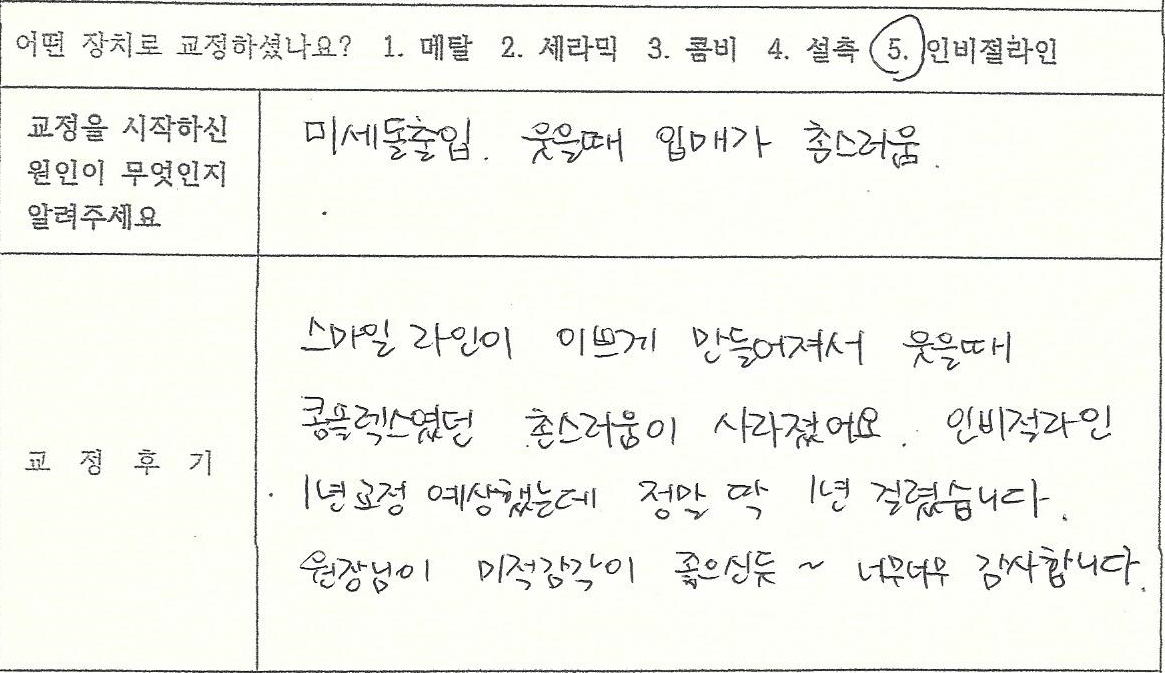 어떤 장치로 교정하셨나요? 1. 메탈 2. 세라믹 3. 콤비 4. 설측 5. 인비절라인
교정을 시작하신
원인이 무엇인지
알려주세요
미세돌출입. 웃을때 입매가 촌스러움.
교 정 후 기
스마일 라인이 이쁘게 만들어져서 웃을때
콤플렉스였던 촌스러움이 사라졌어요. 인비적라인
1년교정 예상했는데 정말 딱 1년 걸렸습니다.
원장님이 미적감각이 좋으신듯~ 너무너무 감사합니다.